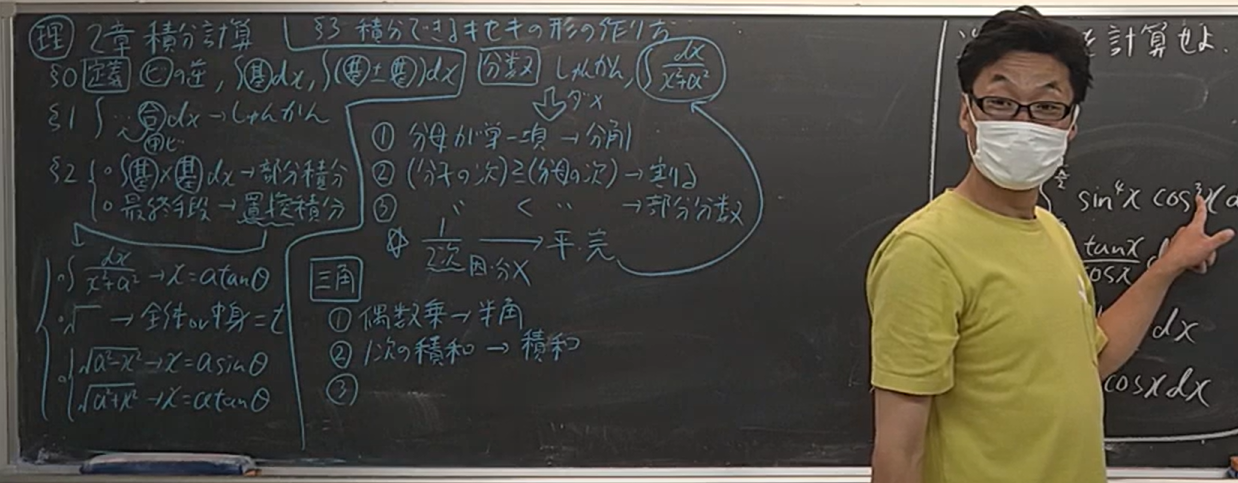 理 2章 積分計算
§0 定義 ビの逆, ∫基dx, ∫(基+基)dx
§1 ∫ 合dx→しゅんかん
§2 ∘∫基×基dx→部分積分
∘最終手段→置換積分
∘∫dx/(x²+a²)→x=atanθ
∘√ →全体or中身=t
∘√(a²-x²)→x=asinθ
√(a²+x²)→x=atanθ
§3 積分できるキセキの形の作り方
分数 しゅんかん, ∫dx/(x²+a²)
⇩ダメ
① 分母が単一項→分割
② (分子の次)≧(分母の次)→割る
③ 〃 < 〃 →部分分数
☆ 1/2次 因・分× → 平・完
三角
① 偶数乗→半角
② 1次の積和→積和
③
を計算せよ.
sin⁴x cos³x
tanx/cosx
dx
cosxdx